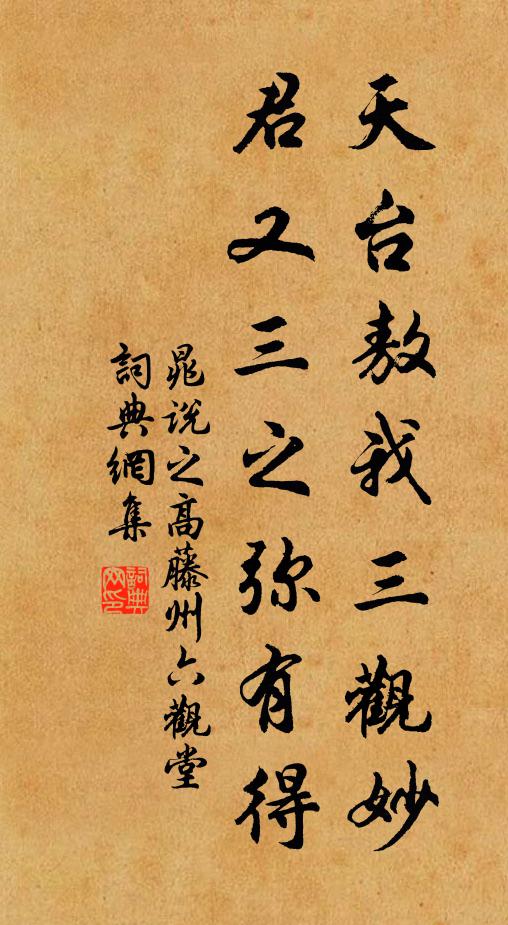 天台敖我三觀妙
君又三之弥有得
晁説之高藤州六觀堂
詞典網集
詞典网印